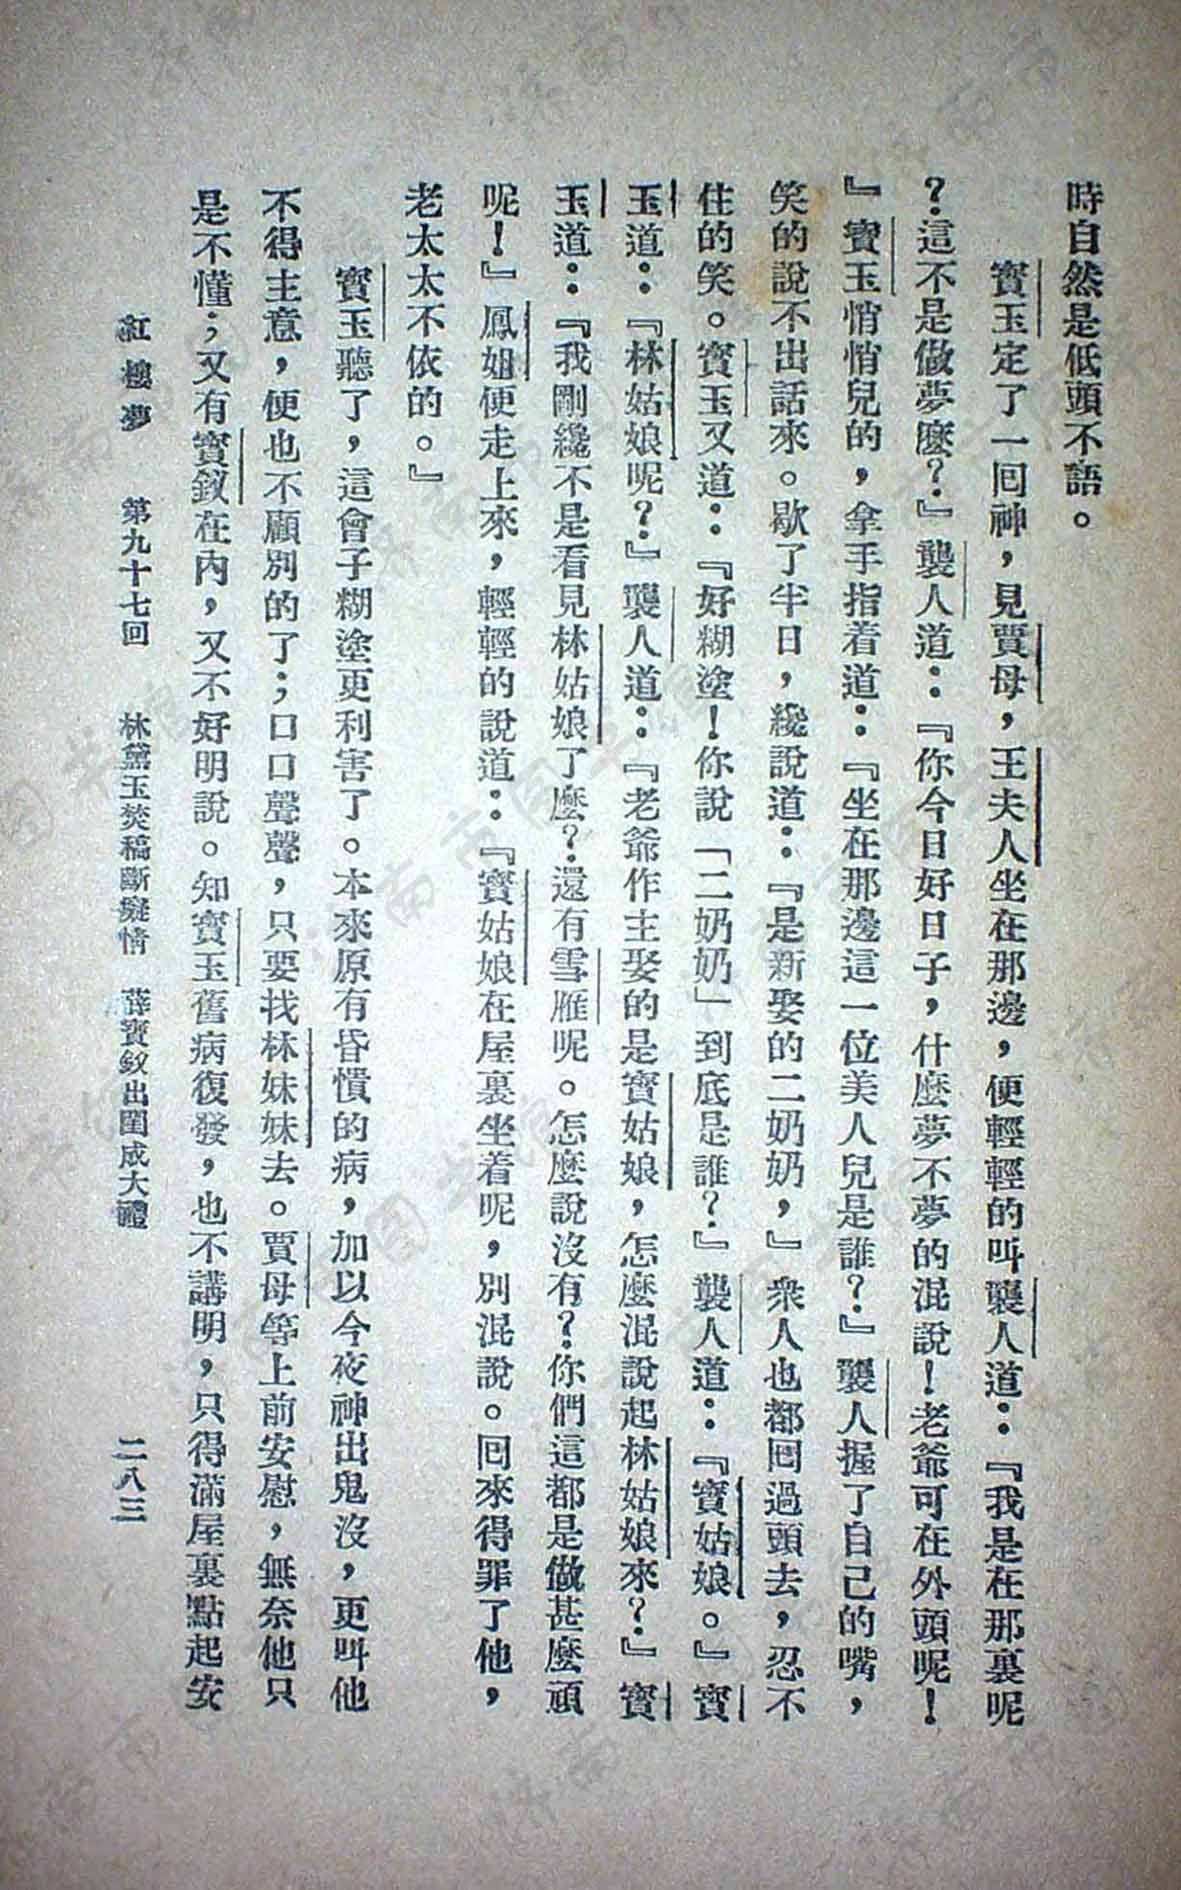 時自然是低頭不語。
寶玉定了一囘神，見賈母，王夫人坐在那邊，便輕輕的叫襲人道：『我是在那裏呢
？這不是做夢麽？』襲人道：『你今日好日子，什麼夢不夢的混說！老爺可在外頭呢！
』寶玉悄悄兒的，拿手指着道：『坐在那邊這一位美人兒是誰？』襲人握了自己的嘴，
笑的說不出話來。歇了半日，纔說道：『是新娶的二奶奶，』衆人也都囘過頭去，忍不
住的笑。寶玉又道：『好糊塗！你說「二奶奶」到底是誰？』襲人道：『寶姑娘。』寶
玉道：『林姑娘呢？』襲人道：『老爺作主娶的是寶姑娘，怎麼混說起林姑娘來？』寶
玉道：『我剛纔不是看見林姑娘了麼？還有雪雁呢。怎麼說沒有？你們這都是做甚麼頑
呢！』鳳姐便走上來，輕輕的說道：『寶姑娘在屋裏坐着呢，別混說。囘來得罪了他，
老太太不依的。』
寶玉聽了，這會子糊塗更利害了。本來原有昏憒的病，加以今夜神出鬼沒，更叫他
不得主意，便也不顧別的了；口口聲聲，只要找林妹妹去。賈母等上前安慰，無奈他只
是不懂；又有寶釵在內，又不好明說。知寶玉舊病復發，也不講明，只得滿屋裏點起安
紅樓夢 第九十七回 林黛玉焚稿斷癡情 薛寶釵出閨成大禮 二八三